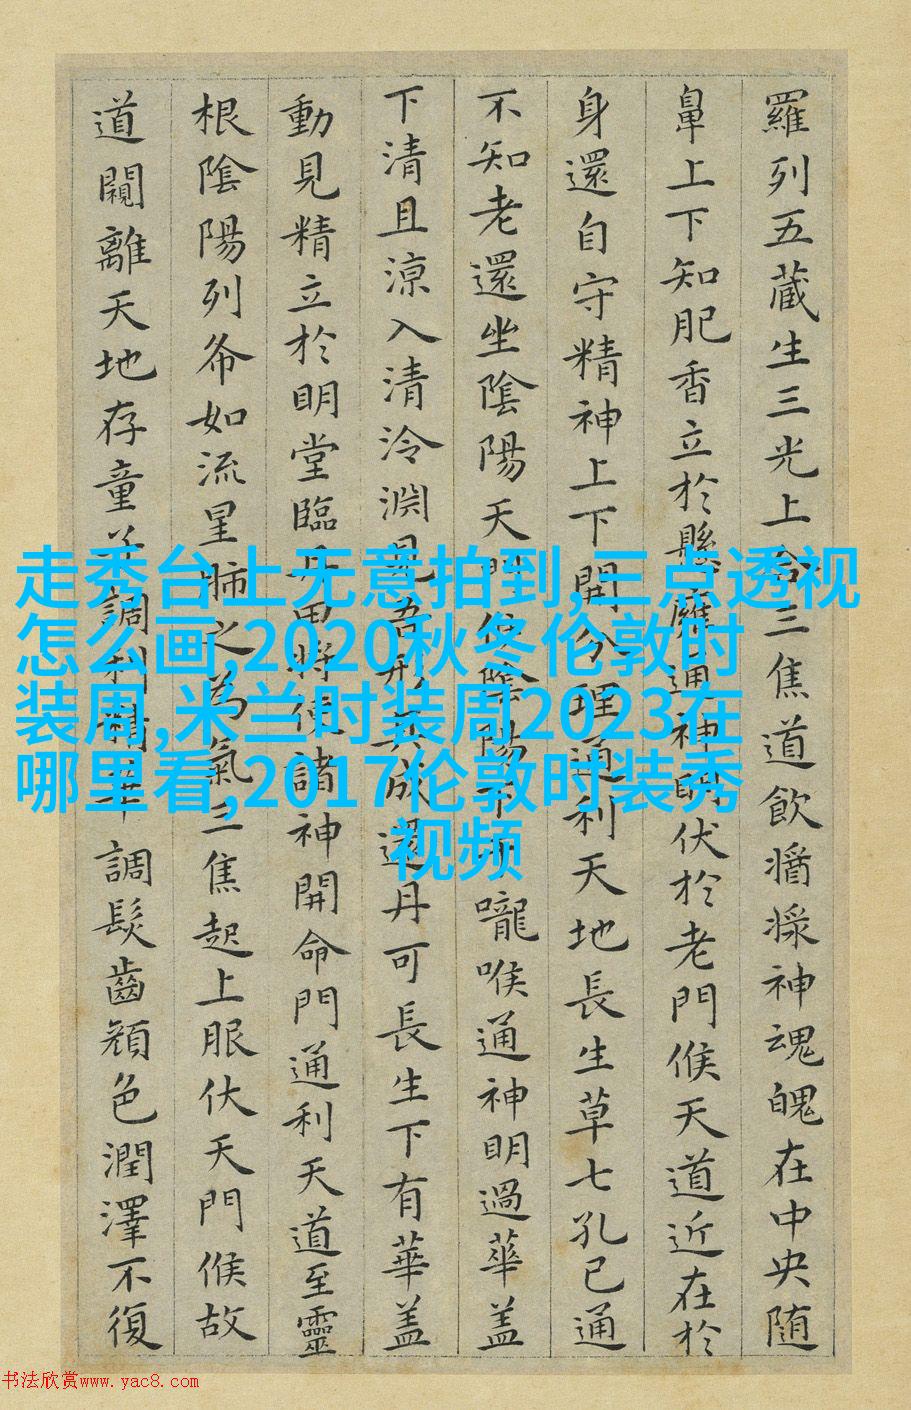 羅列五藏生三光上合三焦道飲漿神魂魄在中央随
鼻上下知肥香立於懸癰通神明伏於老門候天道近在於
身還自守精神上下開分理通利天地長生草七孔已通
不知老還坐陰陽天門候陰陽下于嚨喉通神明過華盖
下清且涼入清泠淵見吾形其成還丹可長生下有華盖
動見精立於明堂臨丹田将使諸神開命門通利天道至靈
根陰陽列布如流星肺之為氣三焦起上服伏天門候故
道闚離天地存童子調利精華調髮齒顔色潤澤不復
走秀台上无意拍到,三点透视
怎么画,2020秋冬伦敦时
装周,米兰时装周2023在
哪里看,2017伦敦时装秀
视频
书法欣赏www.yac8.com